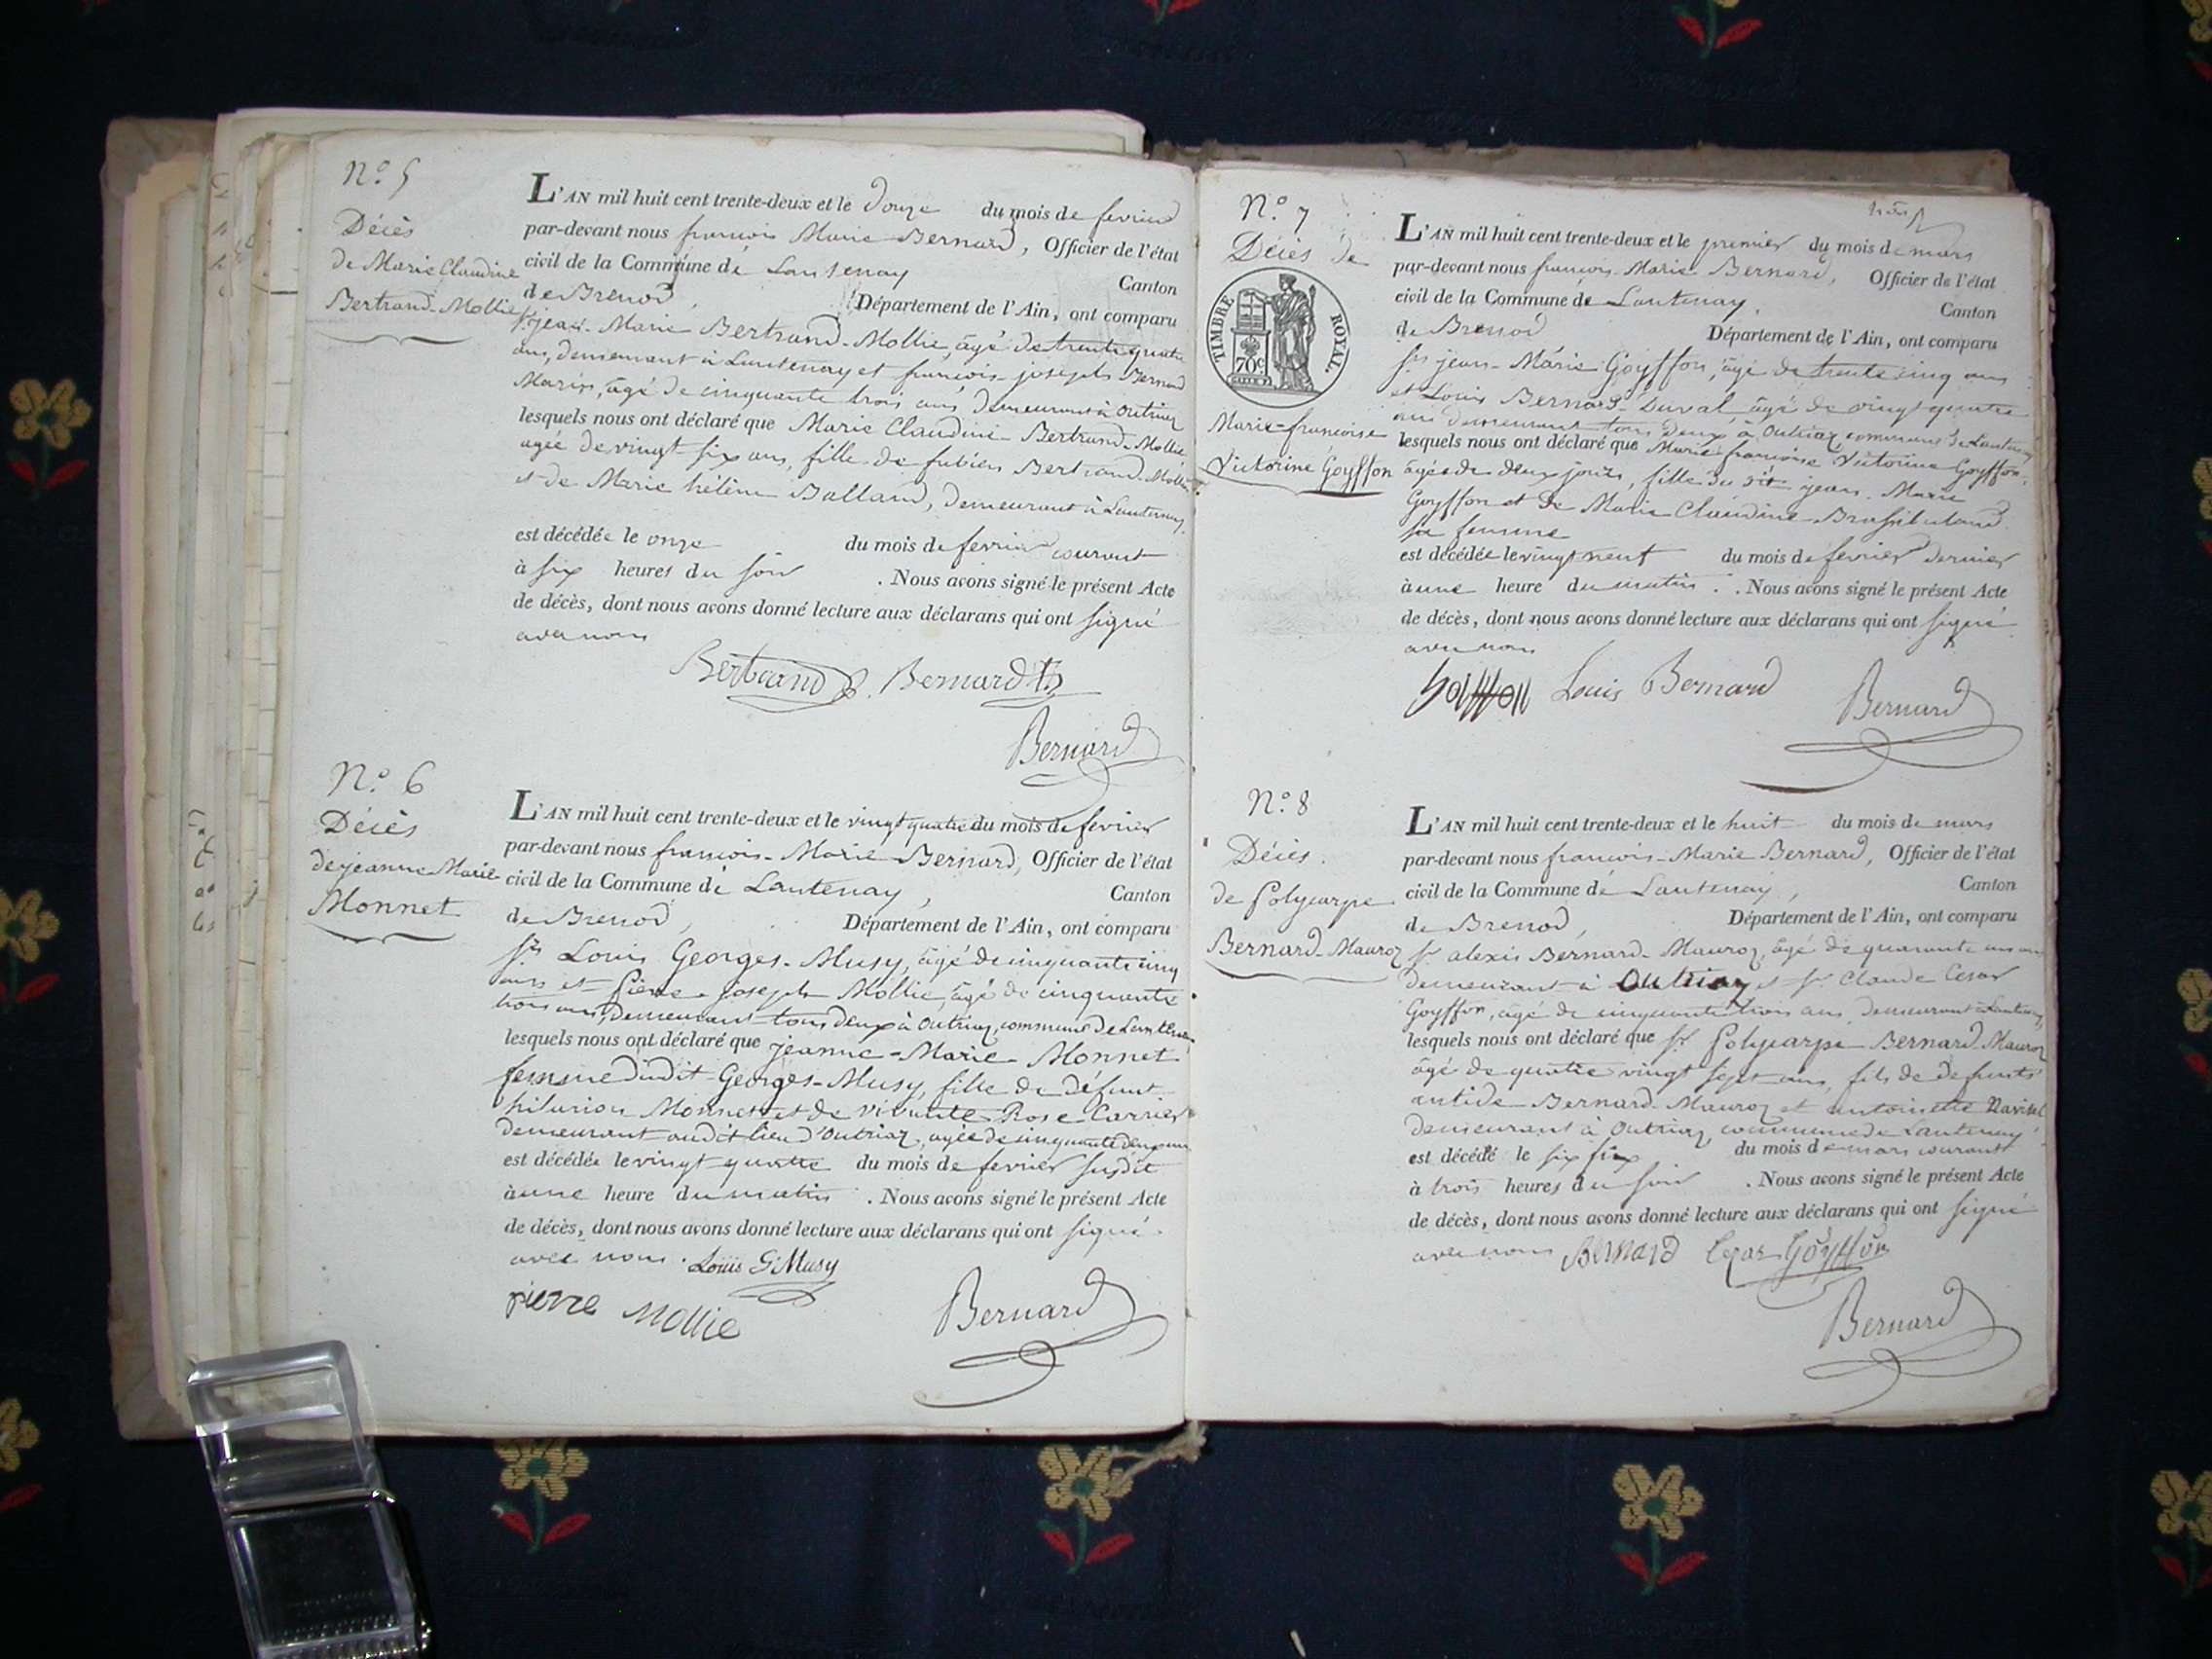 N.o 5
Décès
de Marie Claudine
Bertrand-Mollie
L'AN mil huit cent trente-deux et le douze du mois de fevrier
par-devant nous francois Marie Bernard, Officier de l'état
civil de la Commune de Lantenay Canton
de Brenod, Département de l'Ain, ont comparu
jean-Marie Bertrand-Mollie, âgé de trente quatre
ans, demeurant à Lantenay et francois-joseph Bernard
âgé de cinquante trois ans demeurant à Outriaz
lesquels nous ont déclaré que Marie Claudine Bertrand-Mollie
agée de vingt six ans, fille de fabien Bertrand-Mollie
et de Marie hélène Balland, demeurant à Lantenay
est décédée le onze du mois de fevrier courant
à six heures du soir. Nous avons signé le présent Acte
de décès, dont nous avons donné lecture aux déclarans qui ont signé
avec nous
Bertrand Bernard
Bernard
N.o 6
Décès
de jeanne Marie
Monnet
L'AN mil huit cent trente-deux et le vingt quatre du mois de fevrier
par-devant nous francois-Marie Bernard, Officier de l'état
civil de la Commune de Lantenay, Canton
de Brenod, Département de l'Ain, ont comparu
srs Louis Georges-Musy, âgé de cinquante cinq
ans et pierre-joseph Mollie, âgé de cinquante
trois ans, demeurant tous deux à Outriaz, commune de Lantenay
lesquels nous ont déclaré que jeanne-Marie Monnet
femme dudit Georges-Musy, fille de défunt
hilarion Monnet et de vivante Rose Carrier
demeurant audit lieu d'Outriaz, agée de cinquante deux ans
est décédée le vingt quatre du mois de fevrier susdit
à une heure du matin. Nous avons signé le présent Acte
de décès, dont nous avons donné lecture aux déclarans qui ont signé
avec nous. Louis G. Musy
pierre Mollie Bernard
N.o 7
Décès de
TIMBRE ROYAL.
70c
Marie-francoise
Victorine Goyffon
L'AN mil huit cent trente-deux et le premier du mois de mars
par-devant nous francois-Marie Bernard, Officier de l'état
civil de la Commune de Lantenay, Canton
de Brenod Département de l'Ain, ont comparu
srs jean-Marie Goyffon, âgé de trente cinq ans
et Louis Bernard-Duval, âgé de vingt quatre
ans demeurant tous deux à Outriaz, commune de Lantenay
lesquels nous ont déclaré que Marie francoise Victorine Goyffon,
âgée de deux jours, fille du dit jean-Marie
Goyffon et de Marie Claudine
sa femme
est décédée le vingt neuf du mois de fevrier dernier
à une heure du matin. Nous avons signé le présent Acte
de décès, dont nous avons donné lecture aux déclarans qui ont signé
avec nous
Goiffon Louis Bernard Bernard
N.o 8
Décès
de Polycarpe
Bernard-Mauroz
L'AN mil huit cent trente-deux et le huit du mois de mars
par-devant nous francois-Marie Bernard, Officier de l'état
civil de la Commune de Lantenay, Canton
de Brenod, Département de l'Ain, ont comparu
sr alexis Bernard-Mauroz, âgé de quarante un ans
demeurant à Outriaz et sr Claude Cesar
Goyffon, âgé de cinquante trois ans demeurant à Lantenay,
lesquels nous ont déclaré que sr Polycarpe Bernard-Mauroz
âgé de quatre vingt sept ans, fils de defunts
antide Bernard-Mauroz et antoinette
demeurant à Outriaz, commune de Lantenay
est décédé le six six du mois de mars courant
à trois heures du soir. Nous avons signé le présent Acte
de décès, dont nous avons donné lecture aux déclarans qui ont signé
avec nous Bernard Cezar Goyffon
Bernard